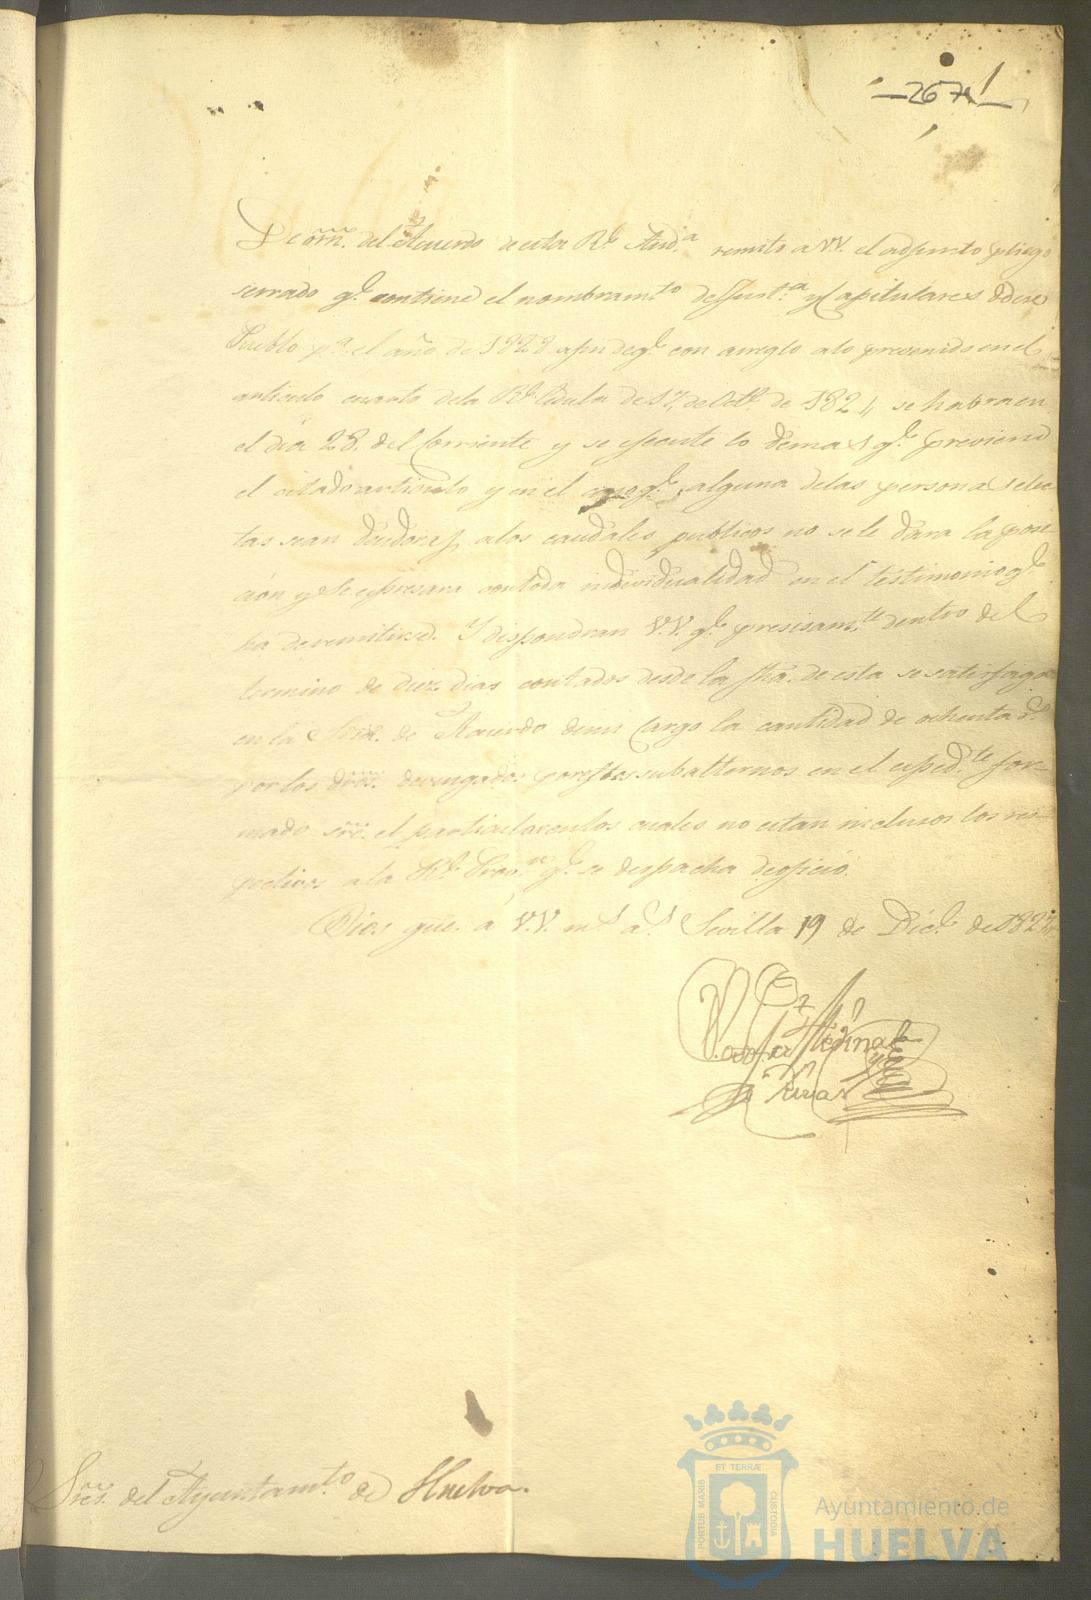 267
De orñ. del Acuerdo de esta Rl. Aud.a remito a VV. el adjunto pliego
serrado q.e contiene el nombram.to de Just.a y Capitulares de ese
Pueblo p.a el año de 1828 afin de q.e con arreglo alo prevenido en el
articulo cuarto dela Rl. Cedula de 17, de Oct.e de 1824 se habra en
el dia 28, del Corriente y se ejecute lo demas q.e previene
el citado articulo y en el caso q.e alguna delas personas elec-
tas sean deudores alos caudales publicos no se le dara la pose-
ción y se espresara con toda individualidad en el testimonio q.e
ha de remitirse. Y dispondran V.V. q.e presisam.te dentro del
termino de diez dias contados desde la fha. de esta se satisfaga
en la Sria. de Acuerdo de mi Cargo la cantidad de ochenta rs.
por los dros. devengados por estos subalternos en el esped.te for-
mado sre. el particular en los cuales no estan inclusos los res-
pectivos a la Rl. Prov.n q.e se despacha de oficio.
Dios gue. á V.V. ms. as. Sevilla 19 de Dic.e de 1827
Medina
y Rivas
Sres. del Ayuntam.to de Huelva.
PORTUS MARIS ET TERRÆ CUSTODIA
Ayuntamiento de
HUELVA